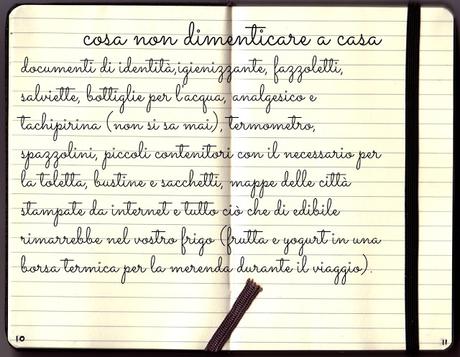 cosa non dimenticare a casa
documenti di identità,igienizzante, fazzoletti,
salviette, bottiglie per l'acqua, analgesico e
tachipirina (non si sa mai), termometro,
spazzolini, piccoli contenitori con il necessario per
la toletta, bustine e sacchetti, mappe delle città
stampate da internet e tutto ciò che di edibile
rimarrebbe nel vostro frigo (frutta e yogurt in una
borsa termica per la merenda durante il viaggio).
10
11